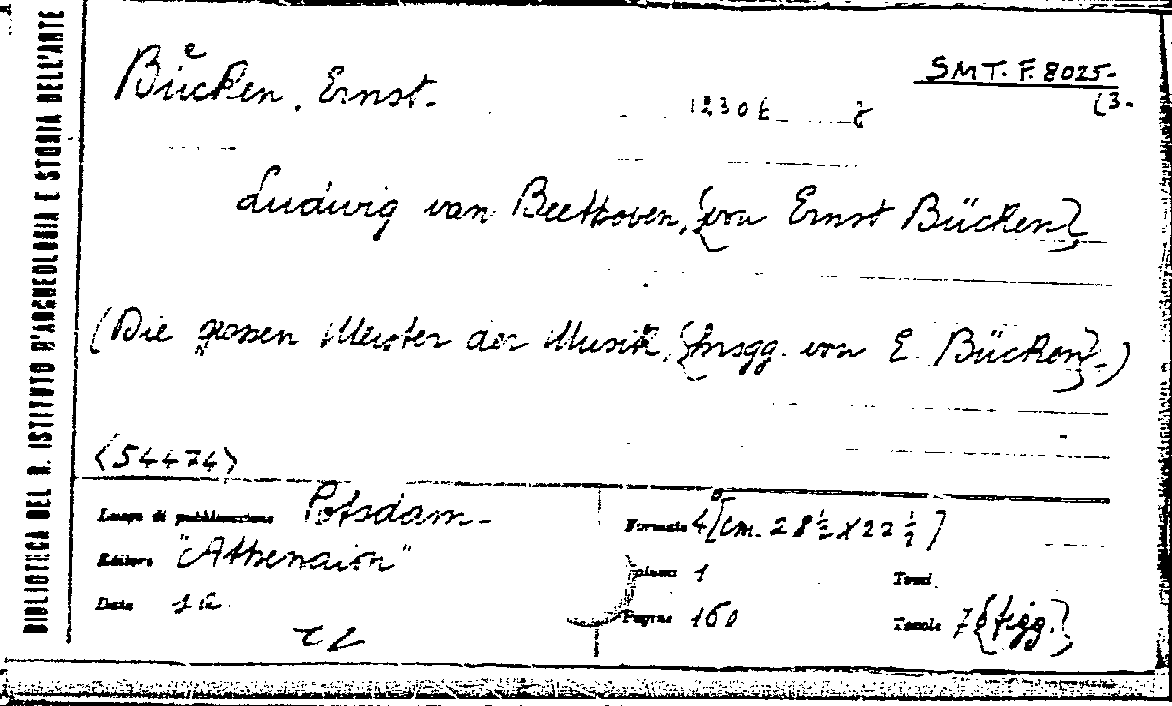 BIBLIOTECA DEL R. ISTITUTO D'ARCHEOLOGIA E STORIA DELL'ARTE
SMT. F. 8025-
(3.
Bücken, Ernst.
e
12306
Ludwig van Beethoven, {von Ernst Bücken}
(Die grossen Meister der Musik, {hrsgg. von E. Bücken}.)
<54474>
Luogo di pubblicazione Potsdam-
Formato 4° [cm. 28½ X 22½]
Editore "Athenaion"
Volumi 1 Tomi
Data
Pagine 160 Tavole 7 {figg.}